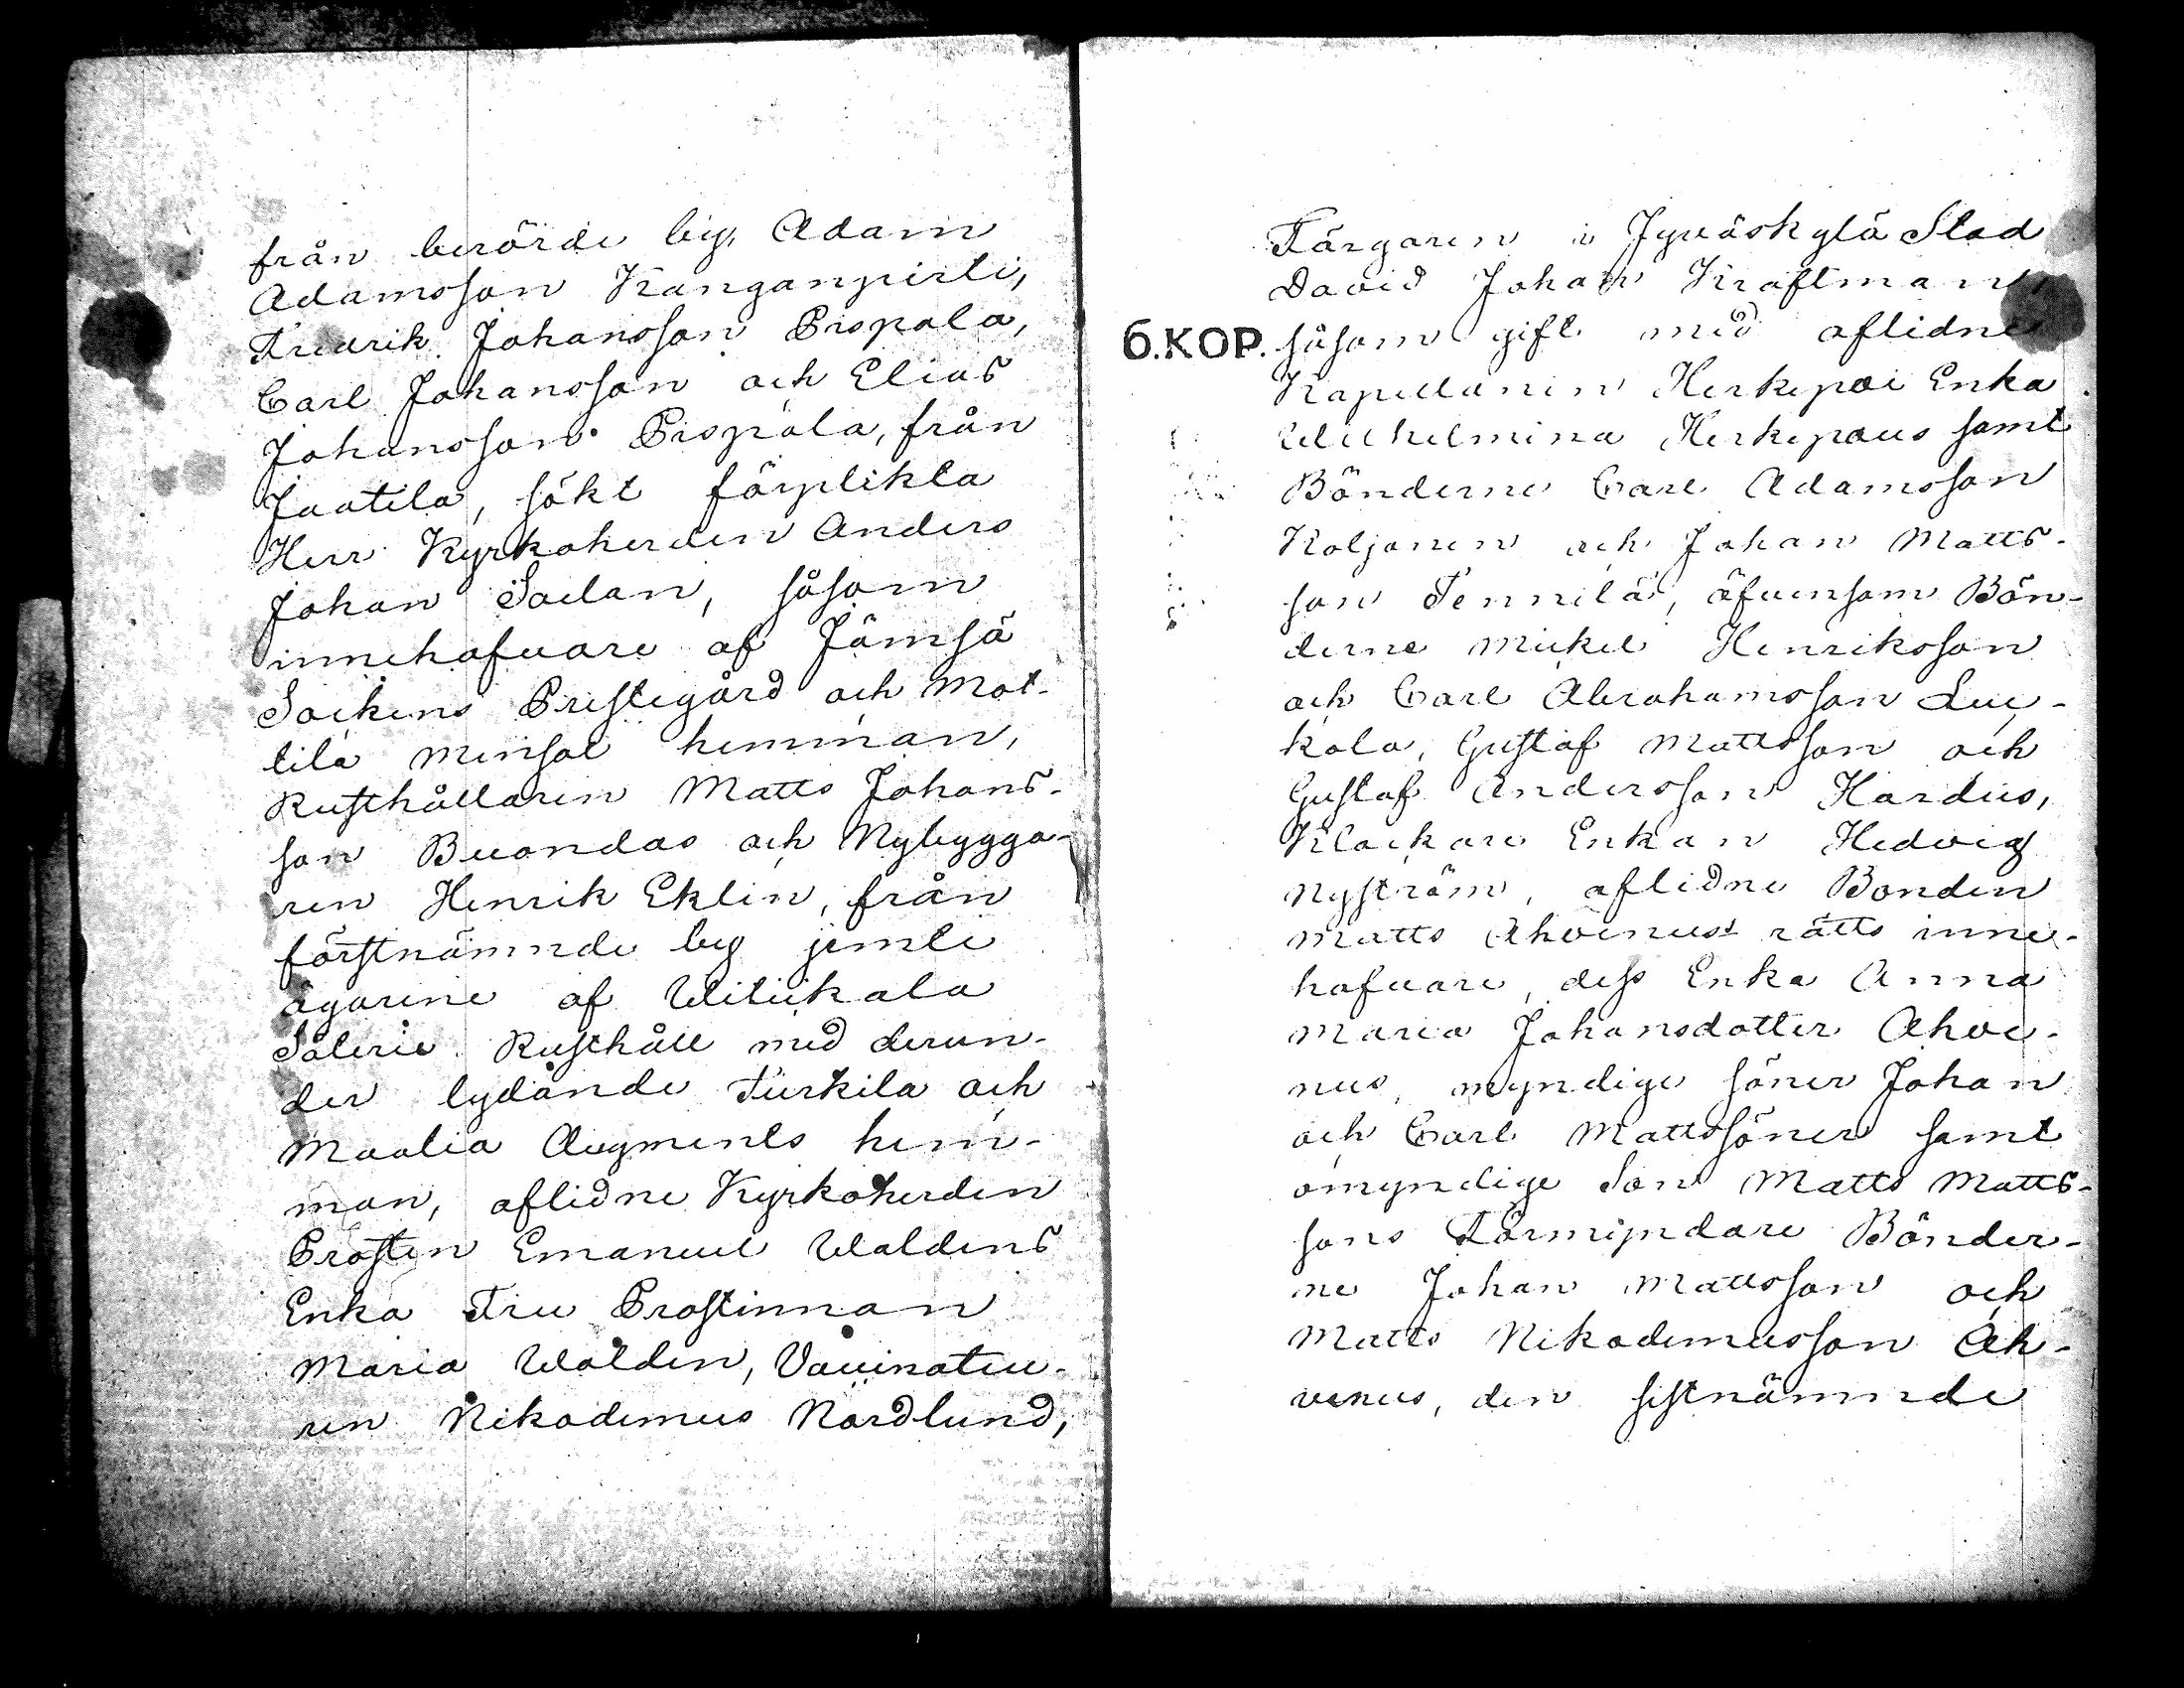 från berörde by, Adam
Adamsson Kanganpirti,
Fredrik Johansson Pispala,
Carl Johansson och Elias
Johansson Pispala, från
Jaatila, sökt förplikta
Herr Kyrkoherden Anders
Johan Sadan, såsom
innehafvare af Jämsä
Sockens Prestegård och Mat-
tila mensal hemman,
Rusthållaren Matts Johans-
son Buondas och Nybygga-
ren Henrik Eklin, från
förstnämnde by jemte
ägarene af Witikala
Säterie Rusthåll med derun-
der lydande Turkila och
Maalia Augments hem-
man, aflidne Kyrkoherden
Prosten Emanuel Waldens
Enka Fru Prostinnan
Maria Walden, Vaccinateu-
ren Nikodemus Nordlund,
Färgaren i Jyväskylä Stad
David Johan Kraftman,
6.KOP.
såsom gift med aflidne
Kapellanen Herkepæi Enka
Wilhelmina Herkepæus samt
Bönderne Carl Adamsson
Koljonen och Johan Matts-
son Tennilä, äfvensom Bön-
derne Mickel Henriksson
och Carl Abrahamsson Luu-
kola, Gustaf Mattsson och
Gustaf Andersson Hardus,
Klockare Enkan Hedvig
Nyström, aflidne Bonden
Matts Ahvenus rätts inne-
hafvare, dess Enka Anna
Maria Johansdotter Ahve-
nus, myndige söner Johan
och Carl Mattssöner samt
omyndige Son Matts Matts-
sons Förmyndare Bönder-
ne Johan Mattsson och
Matts Nikodemusson Ah-
venus, den sistnämnde